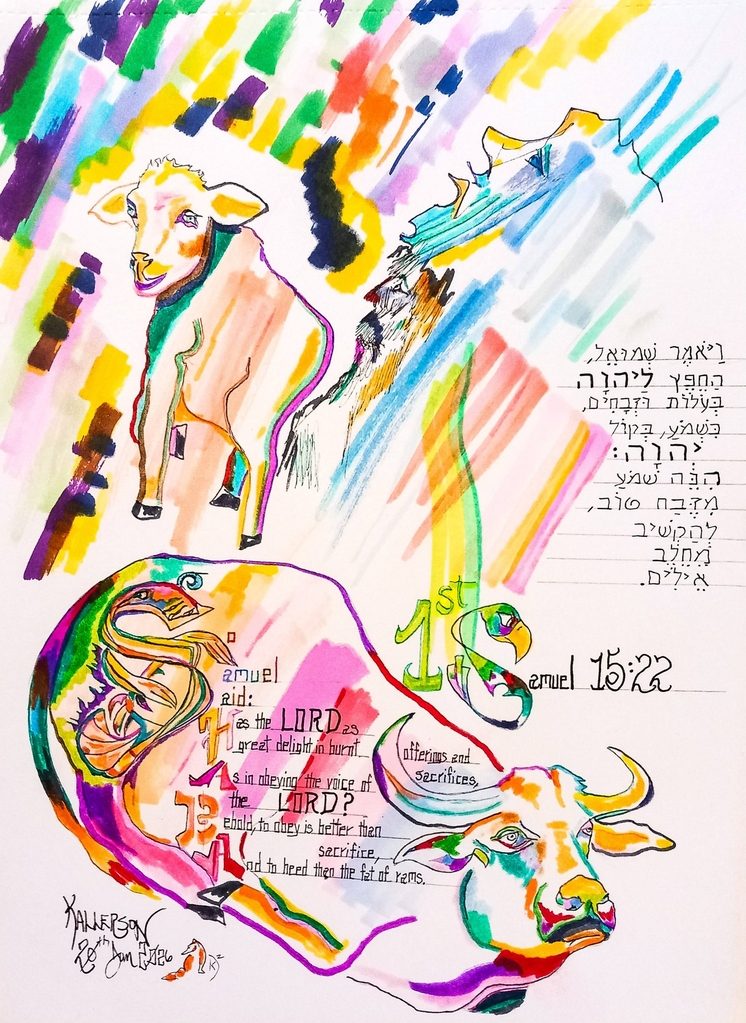 וַיֹּאמֶר שְׁמוּאֵל,
הַחֵפֶץ לַיהוָה
בְּעֹלוֹת וּזְבָחִים,
כִּשְׁמֹעַ, בְּקוֹל
יְהוָה:
הִנֵּה שְׁמֹעַ
מִזֶּבַח טוֹב,
לְהַקְשִׁיב
מֵחֵלֶב
אֵילִים.
1st Samuel 15:22
Samuel
said:
Has the LORD as
great delight in burnt offerings and
sacrifices,
As in obeying the voice of
the LORD?
Behold, to obey is better than
sacrifice,
And to heed than the fat of rams.
KALLERSON
20th Jan 2026